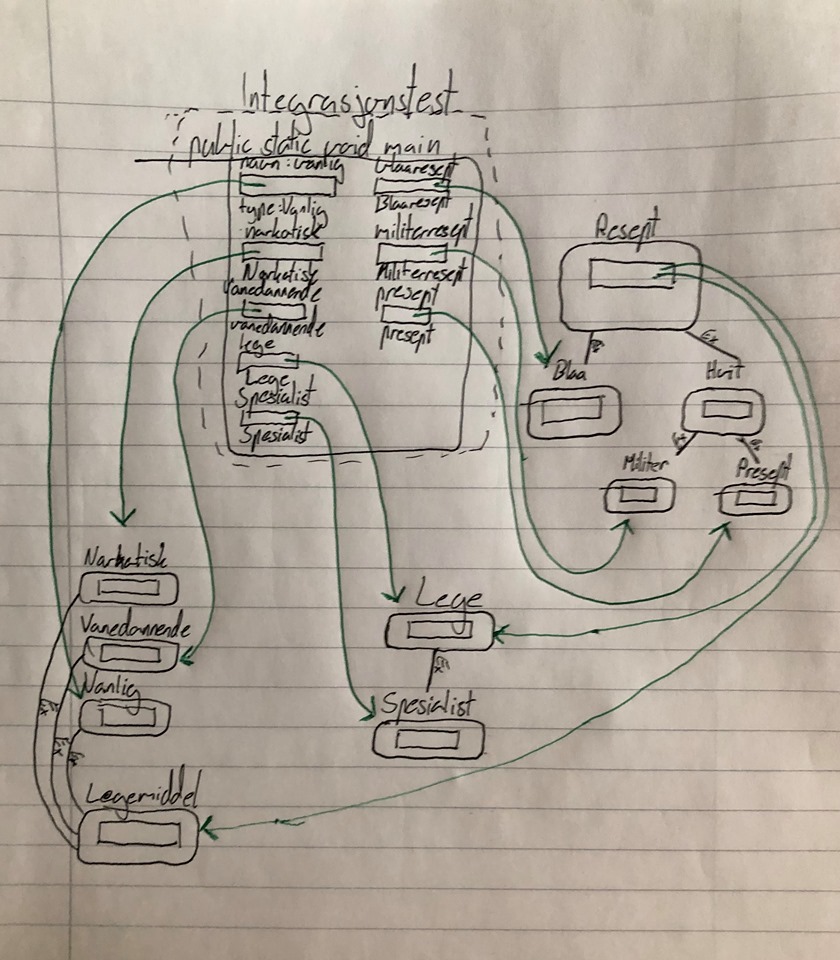 Integrasjonstest
public static void main
navn: vanlig
type: Vanlig
narkotisk
Narkotisk
Vanedannende
vanedannende
lege
Lege
Spesialist
Spesialist
blaaresept
Blaaresept
militerresept
Militerresept
presept
presept
Resept
Ex
Blaa
Hvit
Ex
Ex
Militer
Presept
Narkotisk
Vanedannende
Vanlig
Ex
Ex
Legemiddel
Lege
Ex
Spesialist